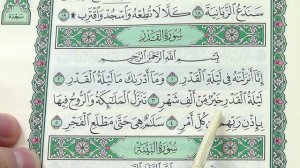 سَنَدْعُ الزَّبَانِيَةَ ۝١٨ كَلَّا لَا تُطِعْهُ وَاسْجُدْ وَاقْتَرِبْ ۝١٩
سُورَةُ الْقَدْرِ
بِسْمِ اللَّهِ الرَّحْمَٰنِ الرَّحِيمِ
إِنَّا أَنزَلْنَاهُ فِي لَيْلَةِ الْقَدْرِ ۝١ وَمَا أَدْرَاكَ مَا لَيْلَةُ الْقَدْرِ ۝٢
لَيْلَةُ الْقَدْرِ خَيْرٌ مِّنْ أَلْفِ شَهْرٍ ۝٣ تَنَزَّلُ الْمَلَائِكَةُ وَالرُّوحُ فِيهَا
بِإِذْنِ رَبِّهِم كُلِّ أَمْرٍ ۝٤ سَلَامٌ هِيَ حَتَّىٰ مَطْلَعِ الْفَجْرِ ۝٥
سُورَةُ الْبَيِّنَةِ